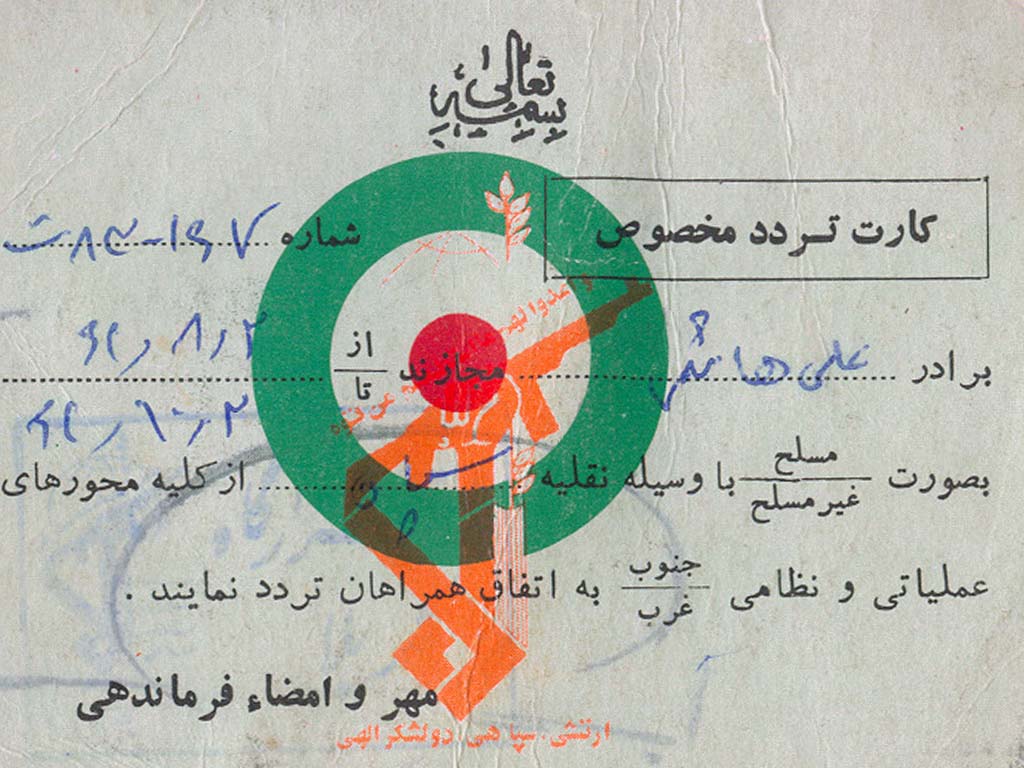 بسمه تعالی
کارت تردد مخصوص
شماره ۱۶۷-۸۳ ت
برادر علی هاشمی مجازند از ۶۲/۸/۲
تا ۶۲/۱۰/۲
بصورت مسلح / غیرمسلح با وسیله نقلیه از کلیه محورهای
عملیاتی و نظامی جنوب / غرب به اتفاق همراهان تردد نمایند .
مهر و امضاء فرماندهی
ارتشی، سپاهی، دولشگر الهی